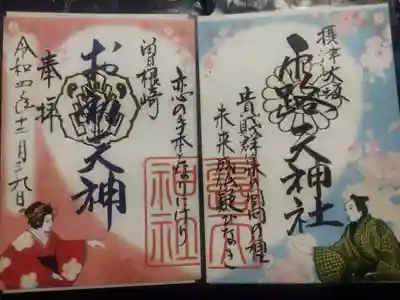 摂津大坂
露天神社
貴賤群集の回向の種
未来成仏疑ひなき
露天
神社
恋の手本となりにけり
曽根崎
お初天神
奉拝
令和四年十二月廿九日